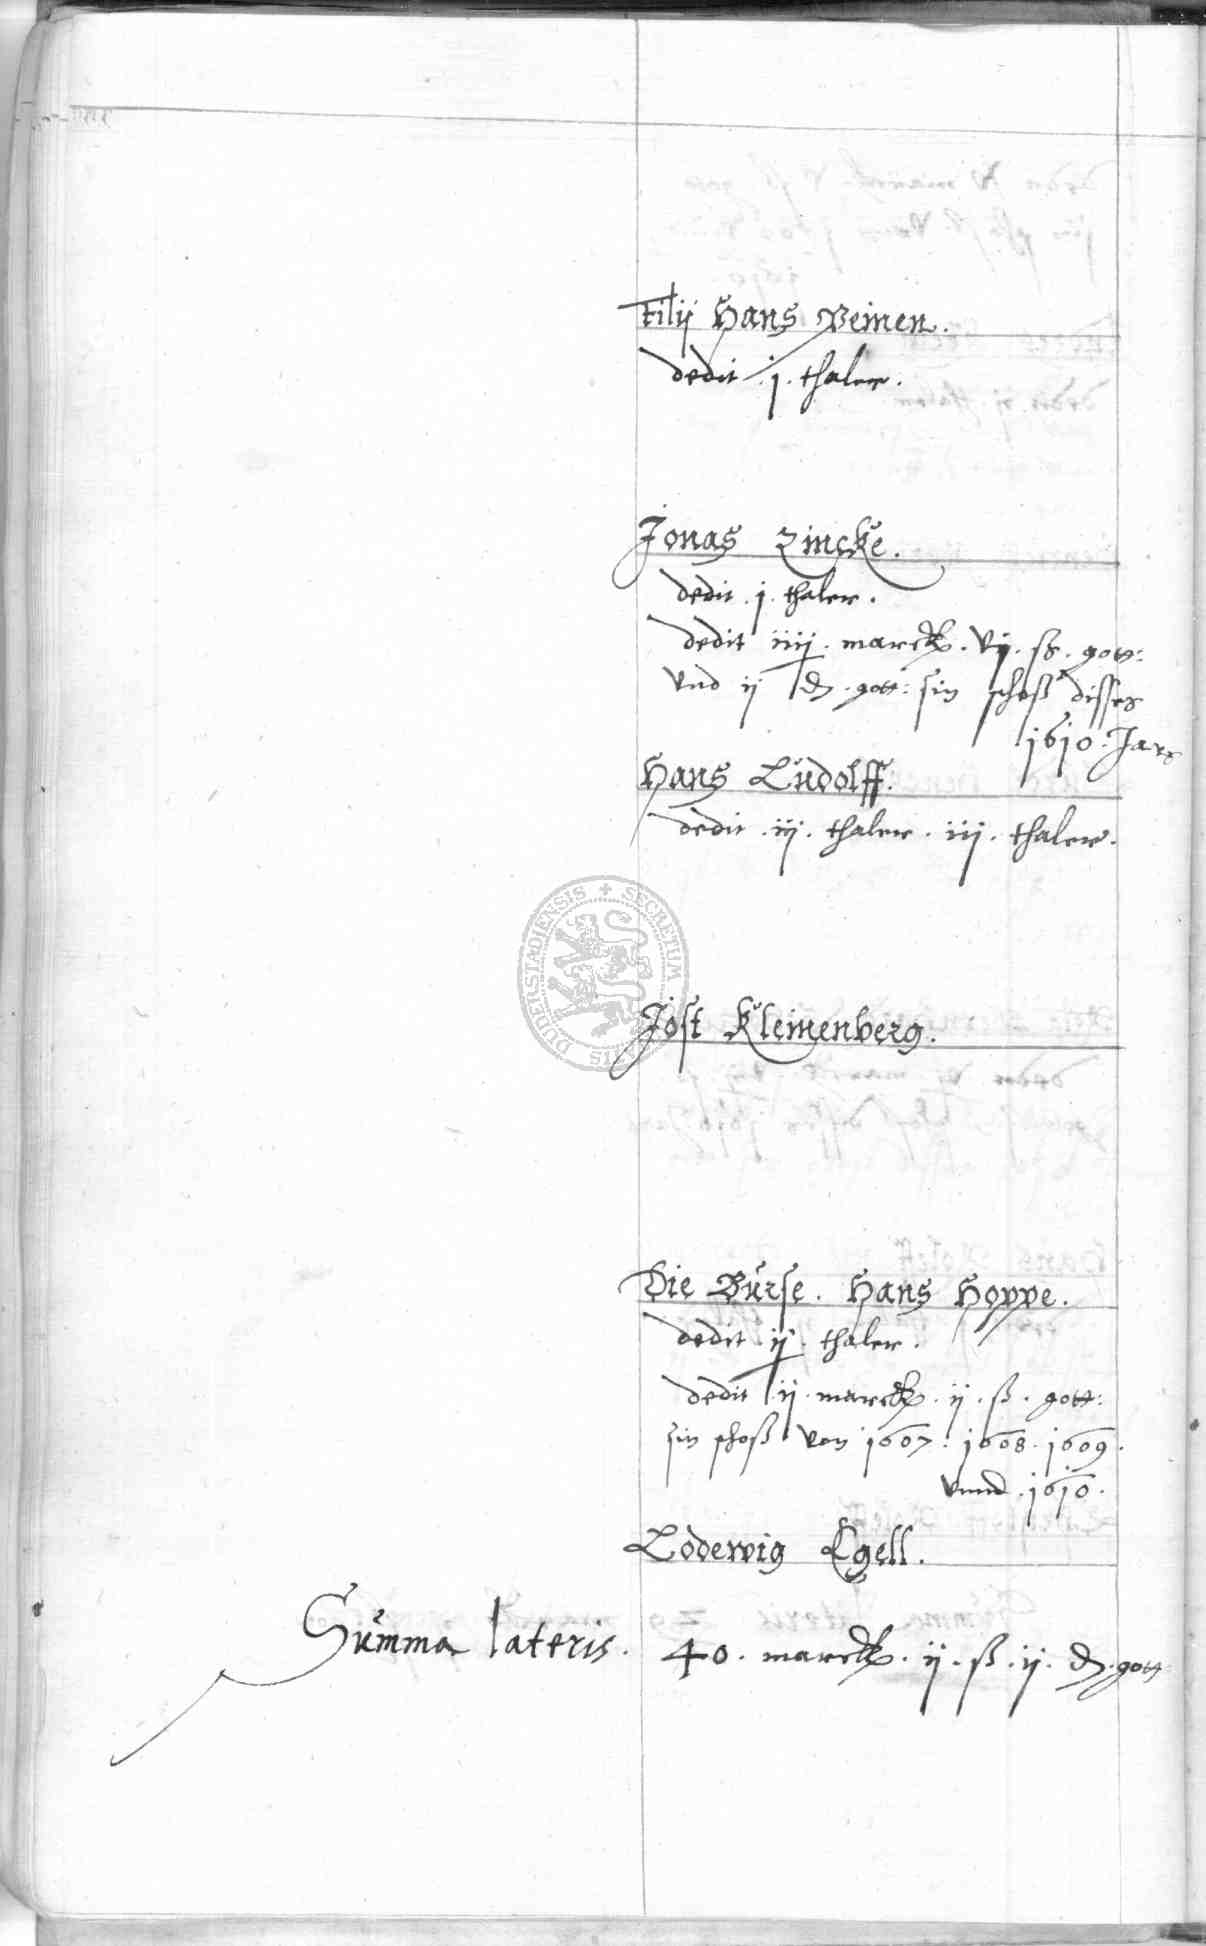 Filij Hans Veinen.
dedit . j . thaler.
Jonas Zincke.
dedit . j . thaler.
dedit iiij . marck . vij . ß . gott:
vnd ij ₰ . gott: sin schoß disses
1610 . Jars
Hans Ludolff.
dedit . iij . thaler . iij . thaler.
SECRETUM
DUDERSTADIENSIS
Jost Kleinenberg.
Die Burse . Hans Hoppe.
dedit . ij . thaler.
dedit ij . marck . ij . ß . gott:
sin schoß von 1607 . 1608 . 1609 .
vnnd . 1610 .
Lodewig Egell.
Summa lateris . 40 . marck . ij . ß . ij . ₰ . gott